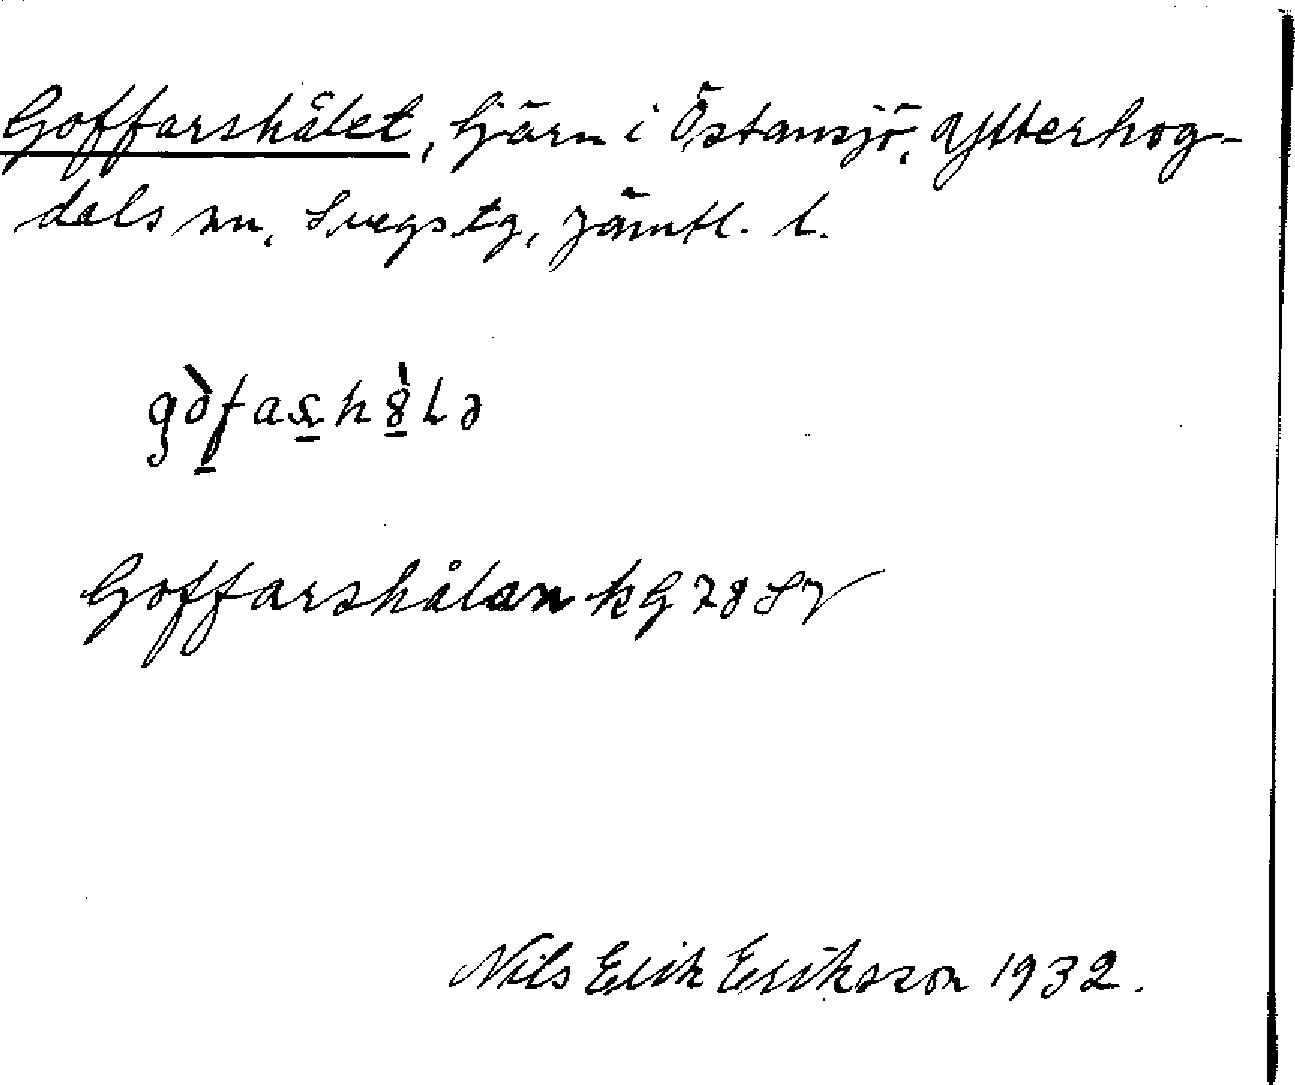 Goffarshålet, tjärn i Östansjö, Ytterhog-
dals sn, Svegs tg, Jämtl. l.
Goffarshålan kG 78 SV
Nils Erik Eriksson 1932.